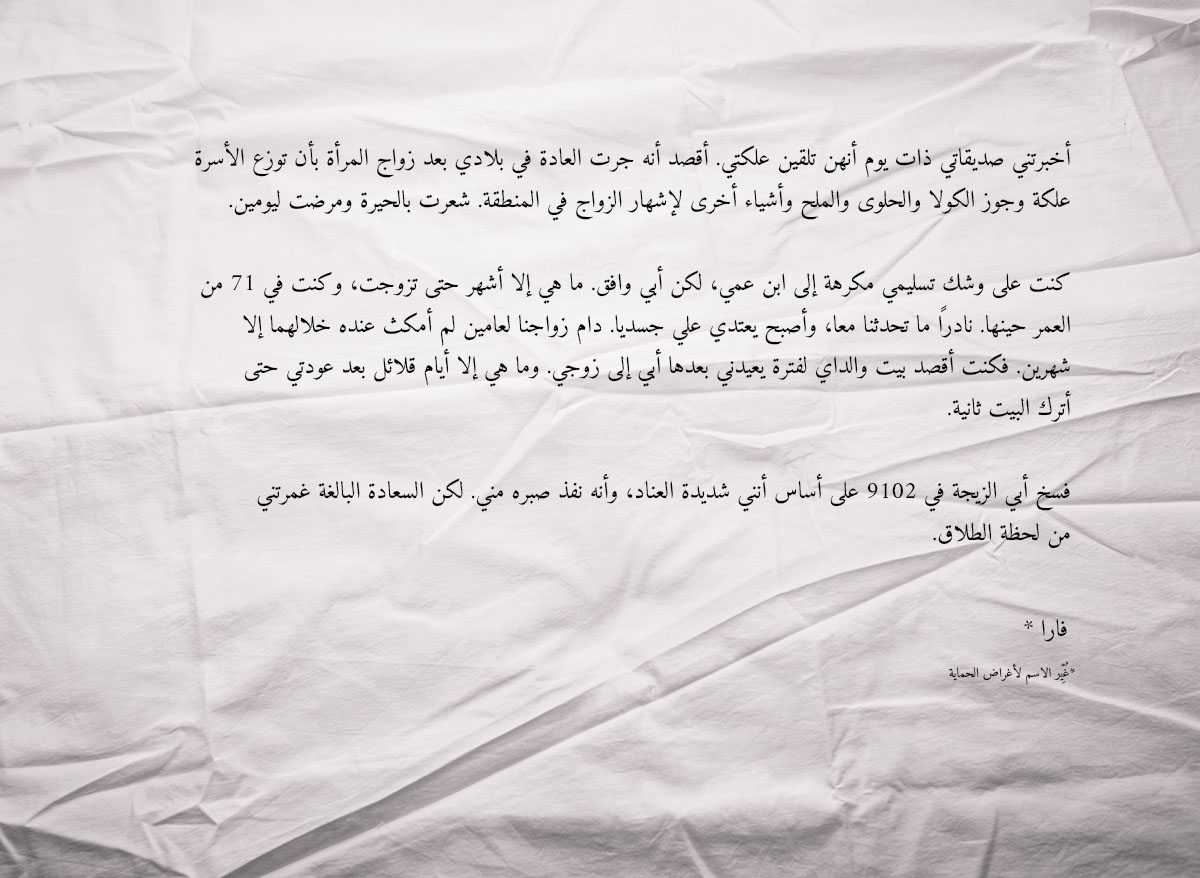 أخبرتني صديقاتي ذات يوم أنهن تلقين علكتي. أقصد أنه جرت العادة في بلادي بعد زواج المرأة بأن توزع الأسرة
علكة وجوز الكولا والحلوى والملح وأشياء أخرى لإشهار الزواج في المنطقة. شعرت بالحيرة ومرضت ليومين.
كنت على وشك تسليمي مكرهة إلى ابن عمي، لكن أبي وافق. ما هي إلا أشهر حتى تزوجت، وكنت في 71 من
العمر حينها. نادراً ما تحدثنا معا، وأصبح يعتدي علي جسديا. دام زواجنا لعامين لم أمكث عنده خلالهما إلا
شهرين. فكنت أقصد بيت والداي لفترة يعيدني بعدها أبي إلى زوجي. وما هي إلا أيام قلائل بعد عودتي حتى
أترك البيت ثانية.
فسخ أبي الزيجة في 9102 على أساس أنني شديدة العناد، وأنه نفذ صبره مني. لكن السعادة البالغة غمرتني
من لحظة الطلاق.
فارا *
*غُيِّر الاسم لأغراض الحماية